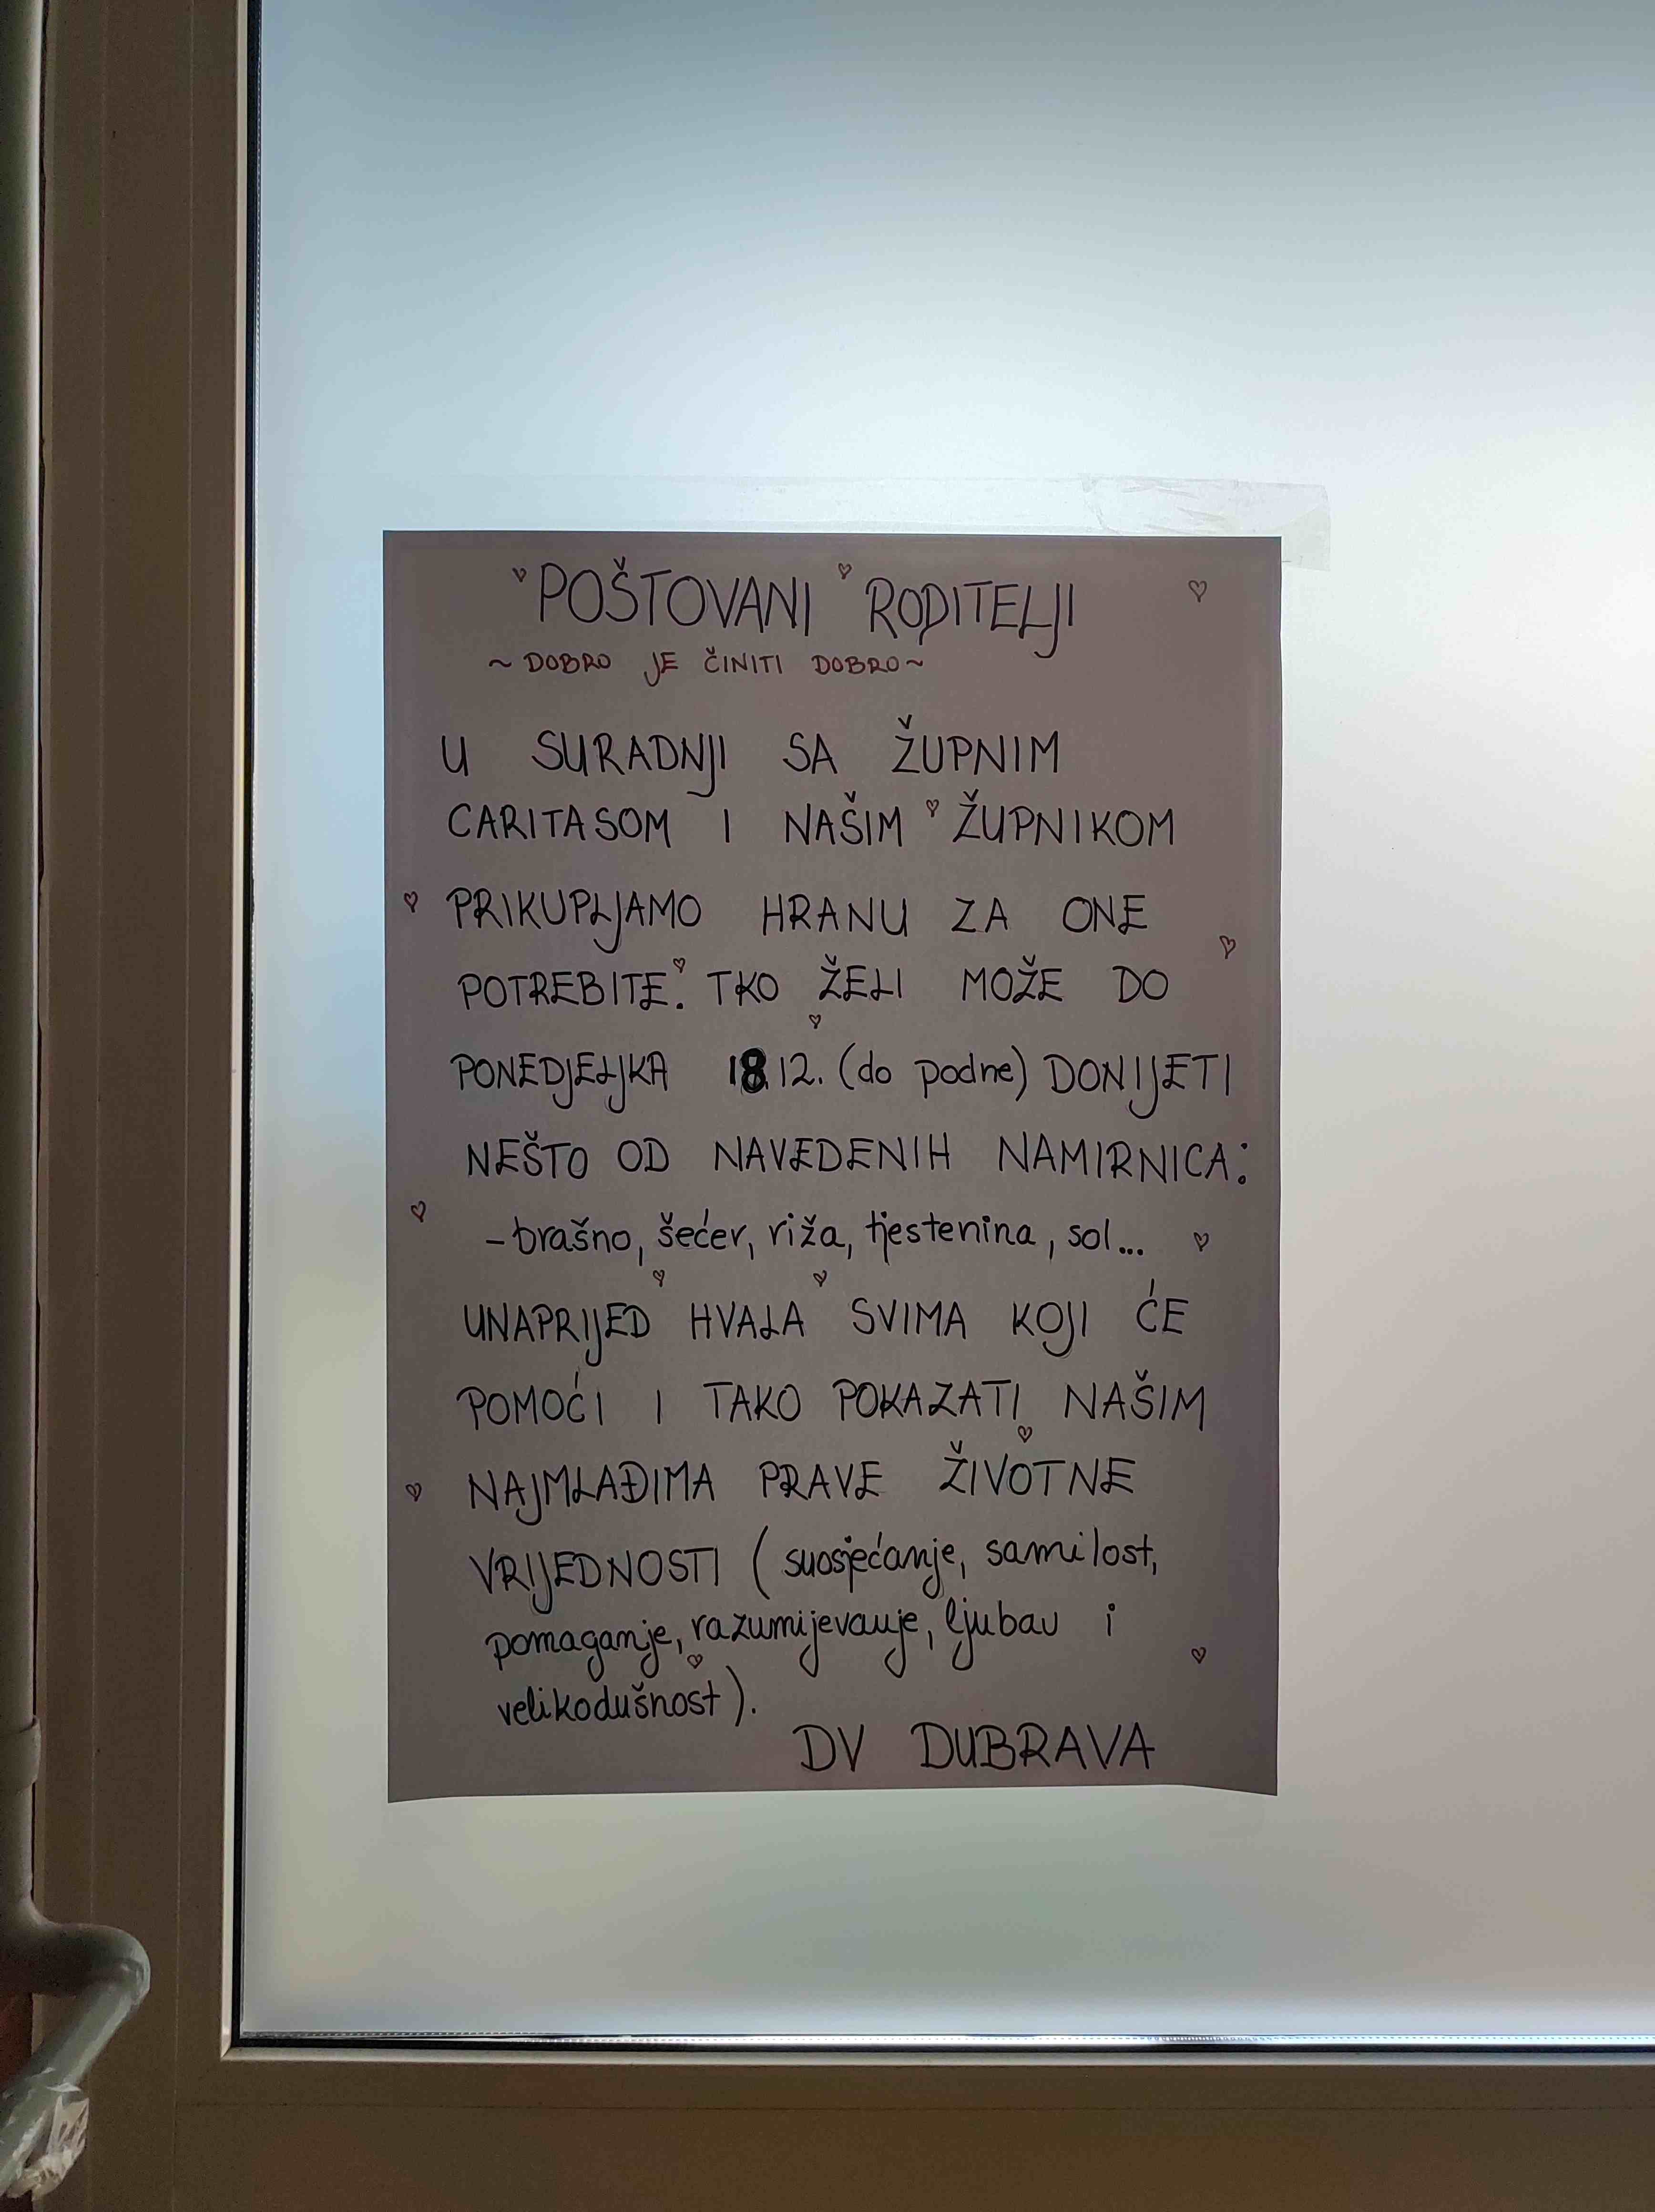 POŠTOVANI RODITELJI
~ DOBRO JE ČINITI DOBRO ~
U SURADNJI SA ŽUPNIM
CARITASOM I NAŠIM ŽUPNIKOM
PRIKUPLJAMO HRANU ZA ONE
POTREBITE. TKO ŽELI MOŽE DO
PONEDJELJKA 18.12. (do podne) DONIJETI
NEŠTO OD NAVEDENIH NAMIRNICA:
- brašno, šećer, riža, tjestenina, sol...
UNAPRIJED HVALA SVIMA KOJI ĆE
POMOĆI I TAKO POKAZATI NAŠIM
NAJMLAĐIMA PRAVE ŽIVOTNE
VRIJEDNOSTI (suosjećanje, samilost,
pomaganje, razumijevanje, ljubav i
velikodušnost).
DV DUBRAVA